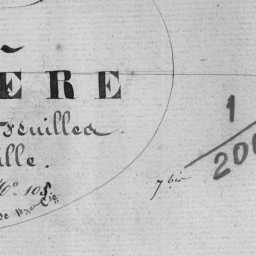 ÈRE
Feuilles.
ille.
N° 108.
7 bis
1
200